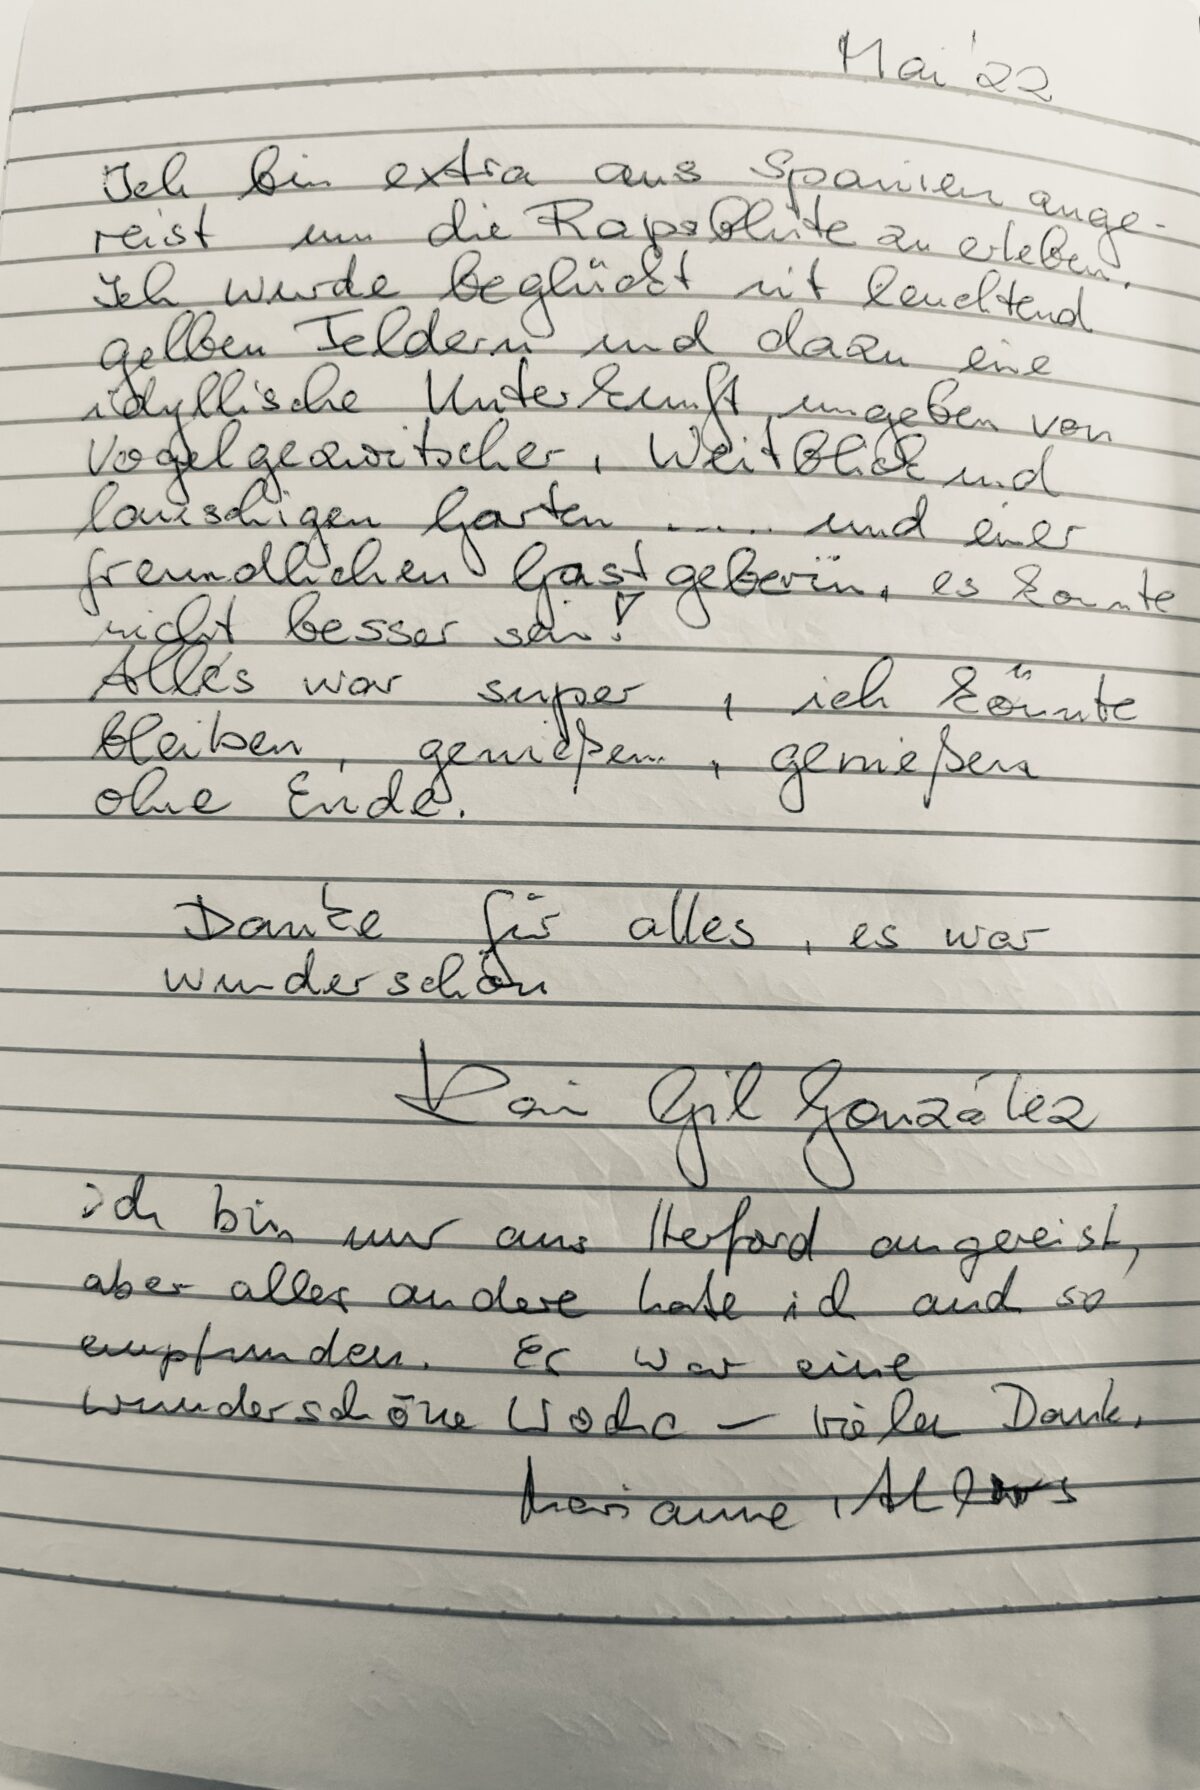 Mai '22
Ich bin extra aus Spanien ange-
reist um die Rapsblüte zu erleben.
Ich wurde beglückt mit leuchtend
gelben Feldern und dazu eine
idyllische Unterkunft umgeben von
Vogelgezwitscher, Weitblick und
lauschigen Garten ..... und einer
freundlichen Gastgeberin, es konnte
nicht besser sein!
Alles war super, ich könnte
bleiben, genießen, genießen
ohne Ende.
Danke für alles, es war
wunderschön
Gil González
Ich bin nur aus Herford angereist,
aber alles andere habe ich auch so
empfunden. Es war eine
wunderschöne Woche – vielen Dank.
Marianne